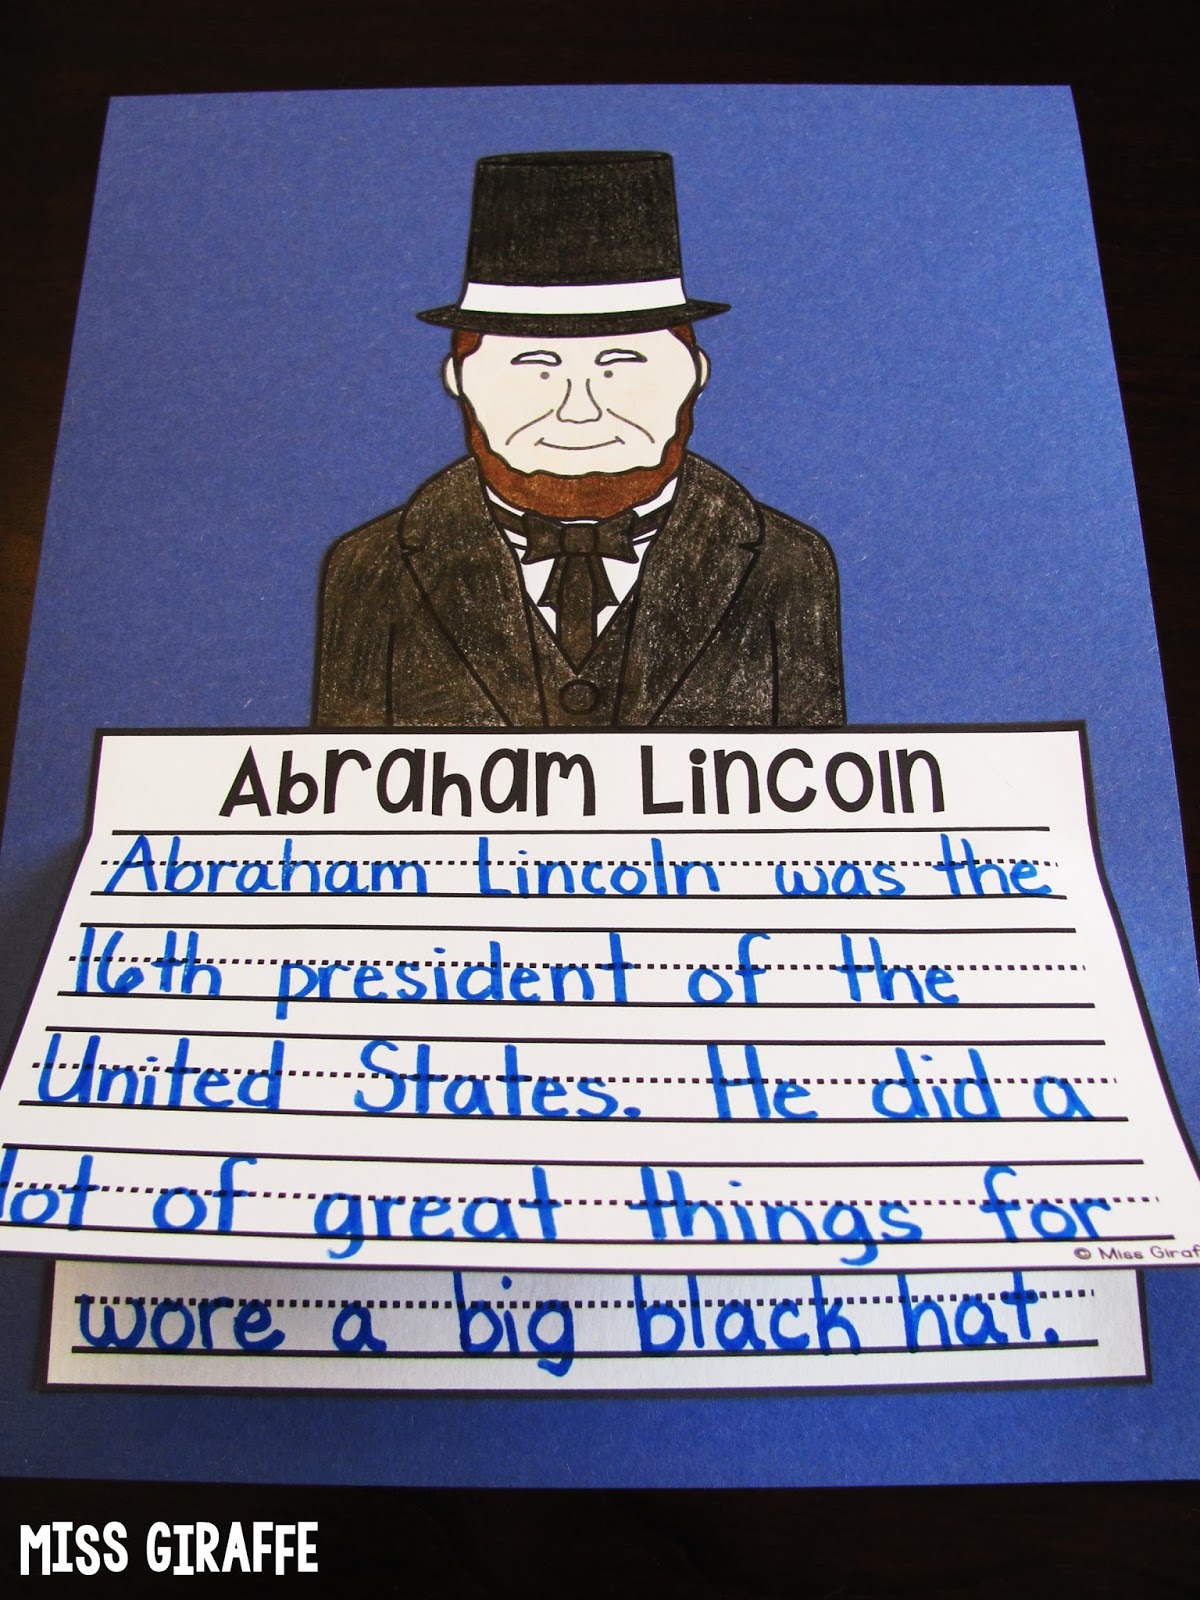 Abraham Lincoln
Abraham Lincoln was the
16th president of the
United States. He did a
lot of great things for
© Miss Giraf
wore a big black hat.
MISS GIRAFFE